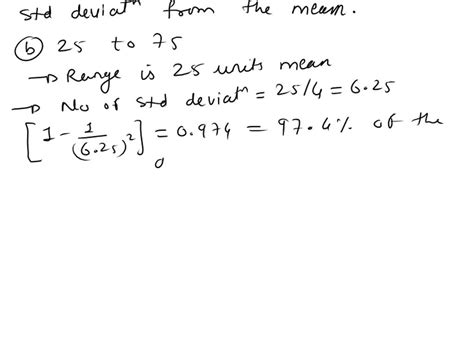 std deviatⁿ from the mean.
ⓑ 25 to 75
→ Range is 25 units mean
→ No of std deviatⁿ = 25/4 = 6.25
[1 - 1/(6.25)²] = 0.974 = 97.4% of the
o